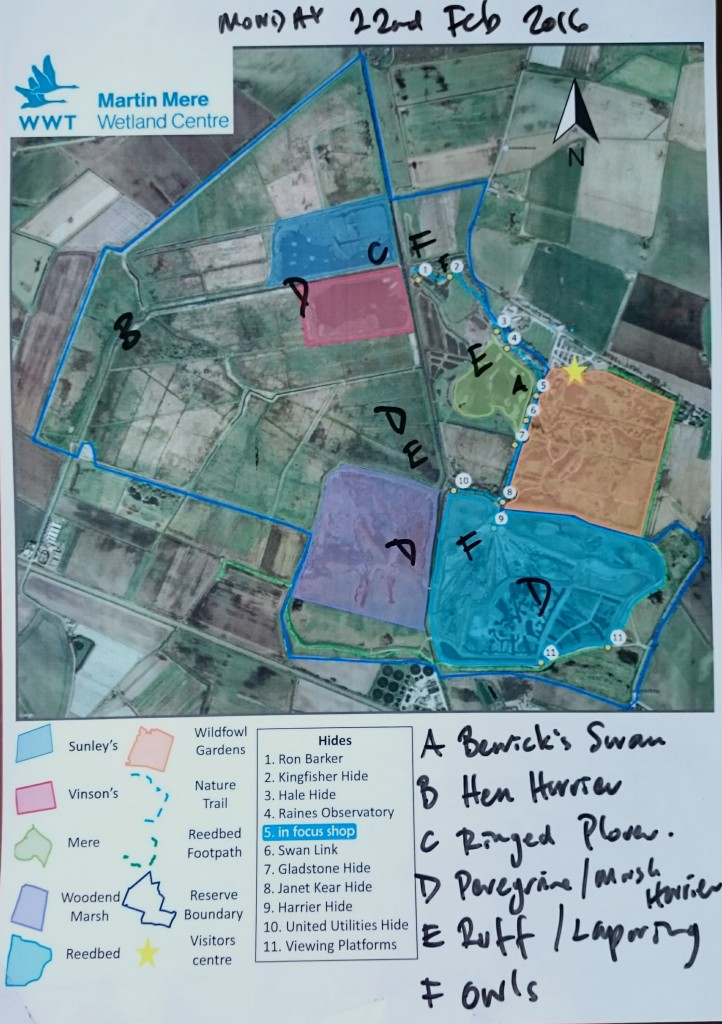 MONDAY 22nd Feb 2016
WWT
Martin Mere
Wetland Centre
N
C
F
F
1
2
D
B
3
4
E
A
5
6
7
D
E
10
8
9
F
D
D
11
11
Sunley's
Wildfowl Gardens
Vinson's
Nature Trail
Mere
Reedbed Footpath
Woodend Marsh
Reserve Boundary
Reedbed
Visitors centre
Hides
1. Ron Barker
2. Kingfisher Hide
3. Hale Hide
4. Raines Observatory
5. in focus shop
6. Swan Link
7. Gladstone Hide
8. Janet Kear Hide
9. Harrier Hide
10. United Utilities Hide
11. Viewing Platforms
A Bewick's Swan
B Hen Harrier
C Ringed Plover.
D Peregrine / Marsh Harrier
E Ruff / Lapwing
F Owls